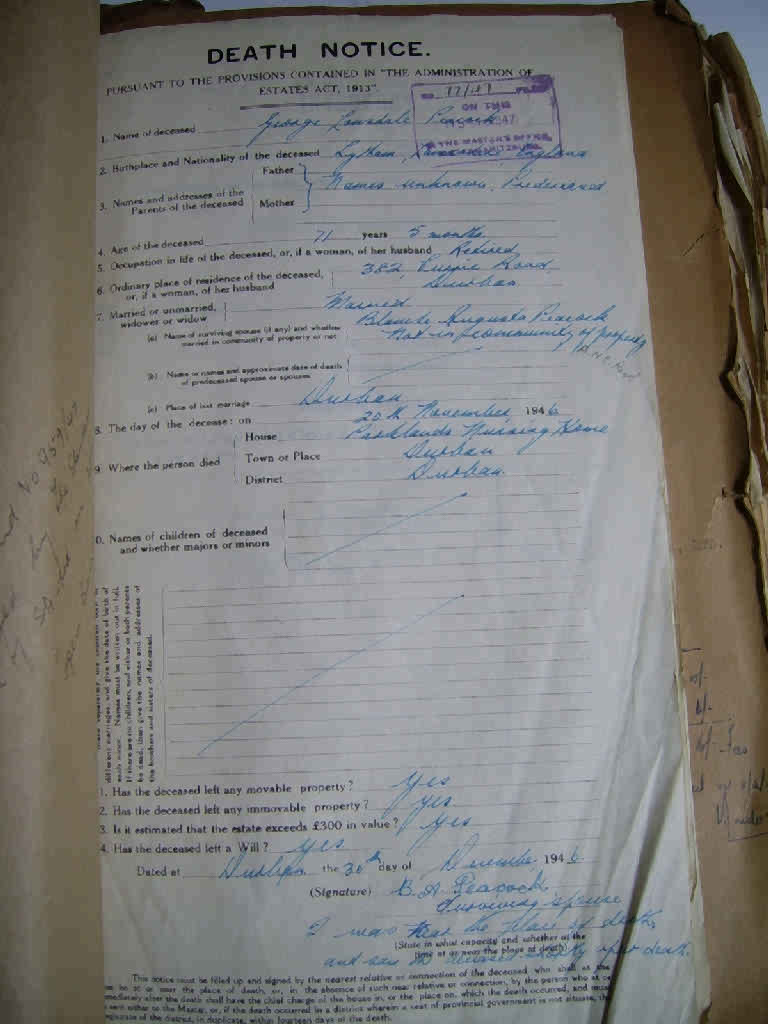 DEATH NOTICE.
PURSUANT TO THE PROVISIONS CONTAINED IN "THE ADMINISTRATION OF
ESTATES ACT, 1913".
ON THIS
THE MASTER'S OFFICE
1. Name of deceased George Lonsdale Peacock
2. Birthplace and Nationality of the deceased Lytham, England
3. Names and addresses of the Parents of the deceased
Father
Mother
Names unknown, Predeceased
4. Age of the deceased 71 years 5 months
5. Occupation in life of the deceased, or, if a woman, of her husband Retired
6. Ordinary place of residence of the deceased, or, if a woman, of her husband
382, Currie Road,
Durban
7. Married or unmarried, widower or widow Married
(a) Name of surviving spouse (if any) and whether married in community of property or not
Blanche Augusta Peacock
Not in community of property
(b) Name or names and approximate date of death of predeceased spouse or spouses
(c) Place of last marriage Durban
8. The day of the decease: on 20th November 1946
9. Where the person died
House Parklands Nursing Home
Town or Place Durban
District Durban
0. Names of children of deceased
and whether majors or minors
different marriages, and give the date of birth of
each minor. Names must be written out in full.
If there are no children, and either or both parents
be dead, then give the names and addresses of
the brothers and sisters of deceased.
1. Has the deceased left any movable property? Yes
2. Has the deceased left any immovable property? Yes
3. Is it estimated that the estate exceeds £300 in value? Yes
4. Has the deceased left a Will? Yes
Dated at Durban the 30th day of December 1946
(Signature) B. A. Peacock
Surviving spouse
I was near the place of death,
(State in what capacity and whether at the
time at or near the place of death)
and saw the deceased shortly after death.
This notice must be filled up and signed by the nearest relative or connection of the deceased who shall at the
be at or near the place of death, or, in the absence of such near relative or connection, by the person who at or
immediately after the death shall have the chief charge of the house in, or the place on, which the death occurred, and must
sent either to the Master, or, if the death occurred in a district wherein a seat of provincial government is not situate, th
of the district, in duplicate, within fourteen days of the death.